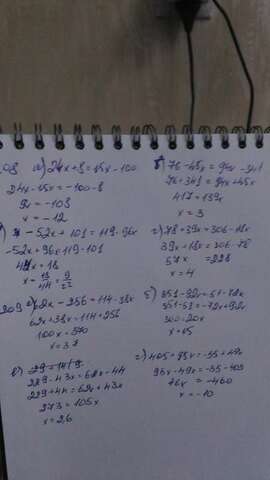 а) 24x + 8 = 15x - 100
24x - 15x = -100 - 8
9x = -108
x = -12
б) 76 - 45x = 94x - 341
76 + 341 = 94x + 45x
417 = 139x
x = 3
в) -52x + 101 = 119 - 96x
-52x + 96x = 119 - 101
44x = 18
x = 18/44 = 9/22
г) 78 + 39x = 306 - 18x
39x + 18x = 306 - 78
57x = 228
x = 4
209 а) 62x - 256 = 114 - 38x
62x + 38x = 114 + 256
100x = 370
x = 3,7
б) 351 - 92x = 51 - 72x
351 - 51 = -72x + 92x
300 = 20x
x = 15
в)
229 - 43x = 62x - 44
229 + 44 = 62x + 43x
273 = 105x
x = 2,6
г) 405 + 95x = -55 + 49x
95x - 49x = -55 - 405
x = -10